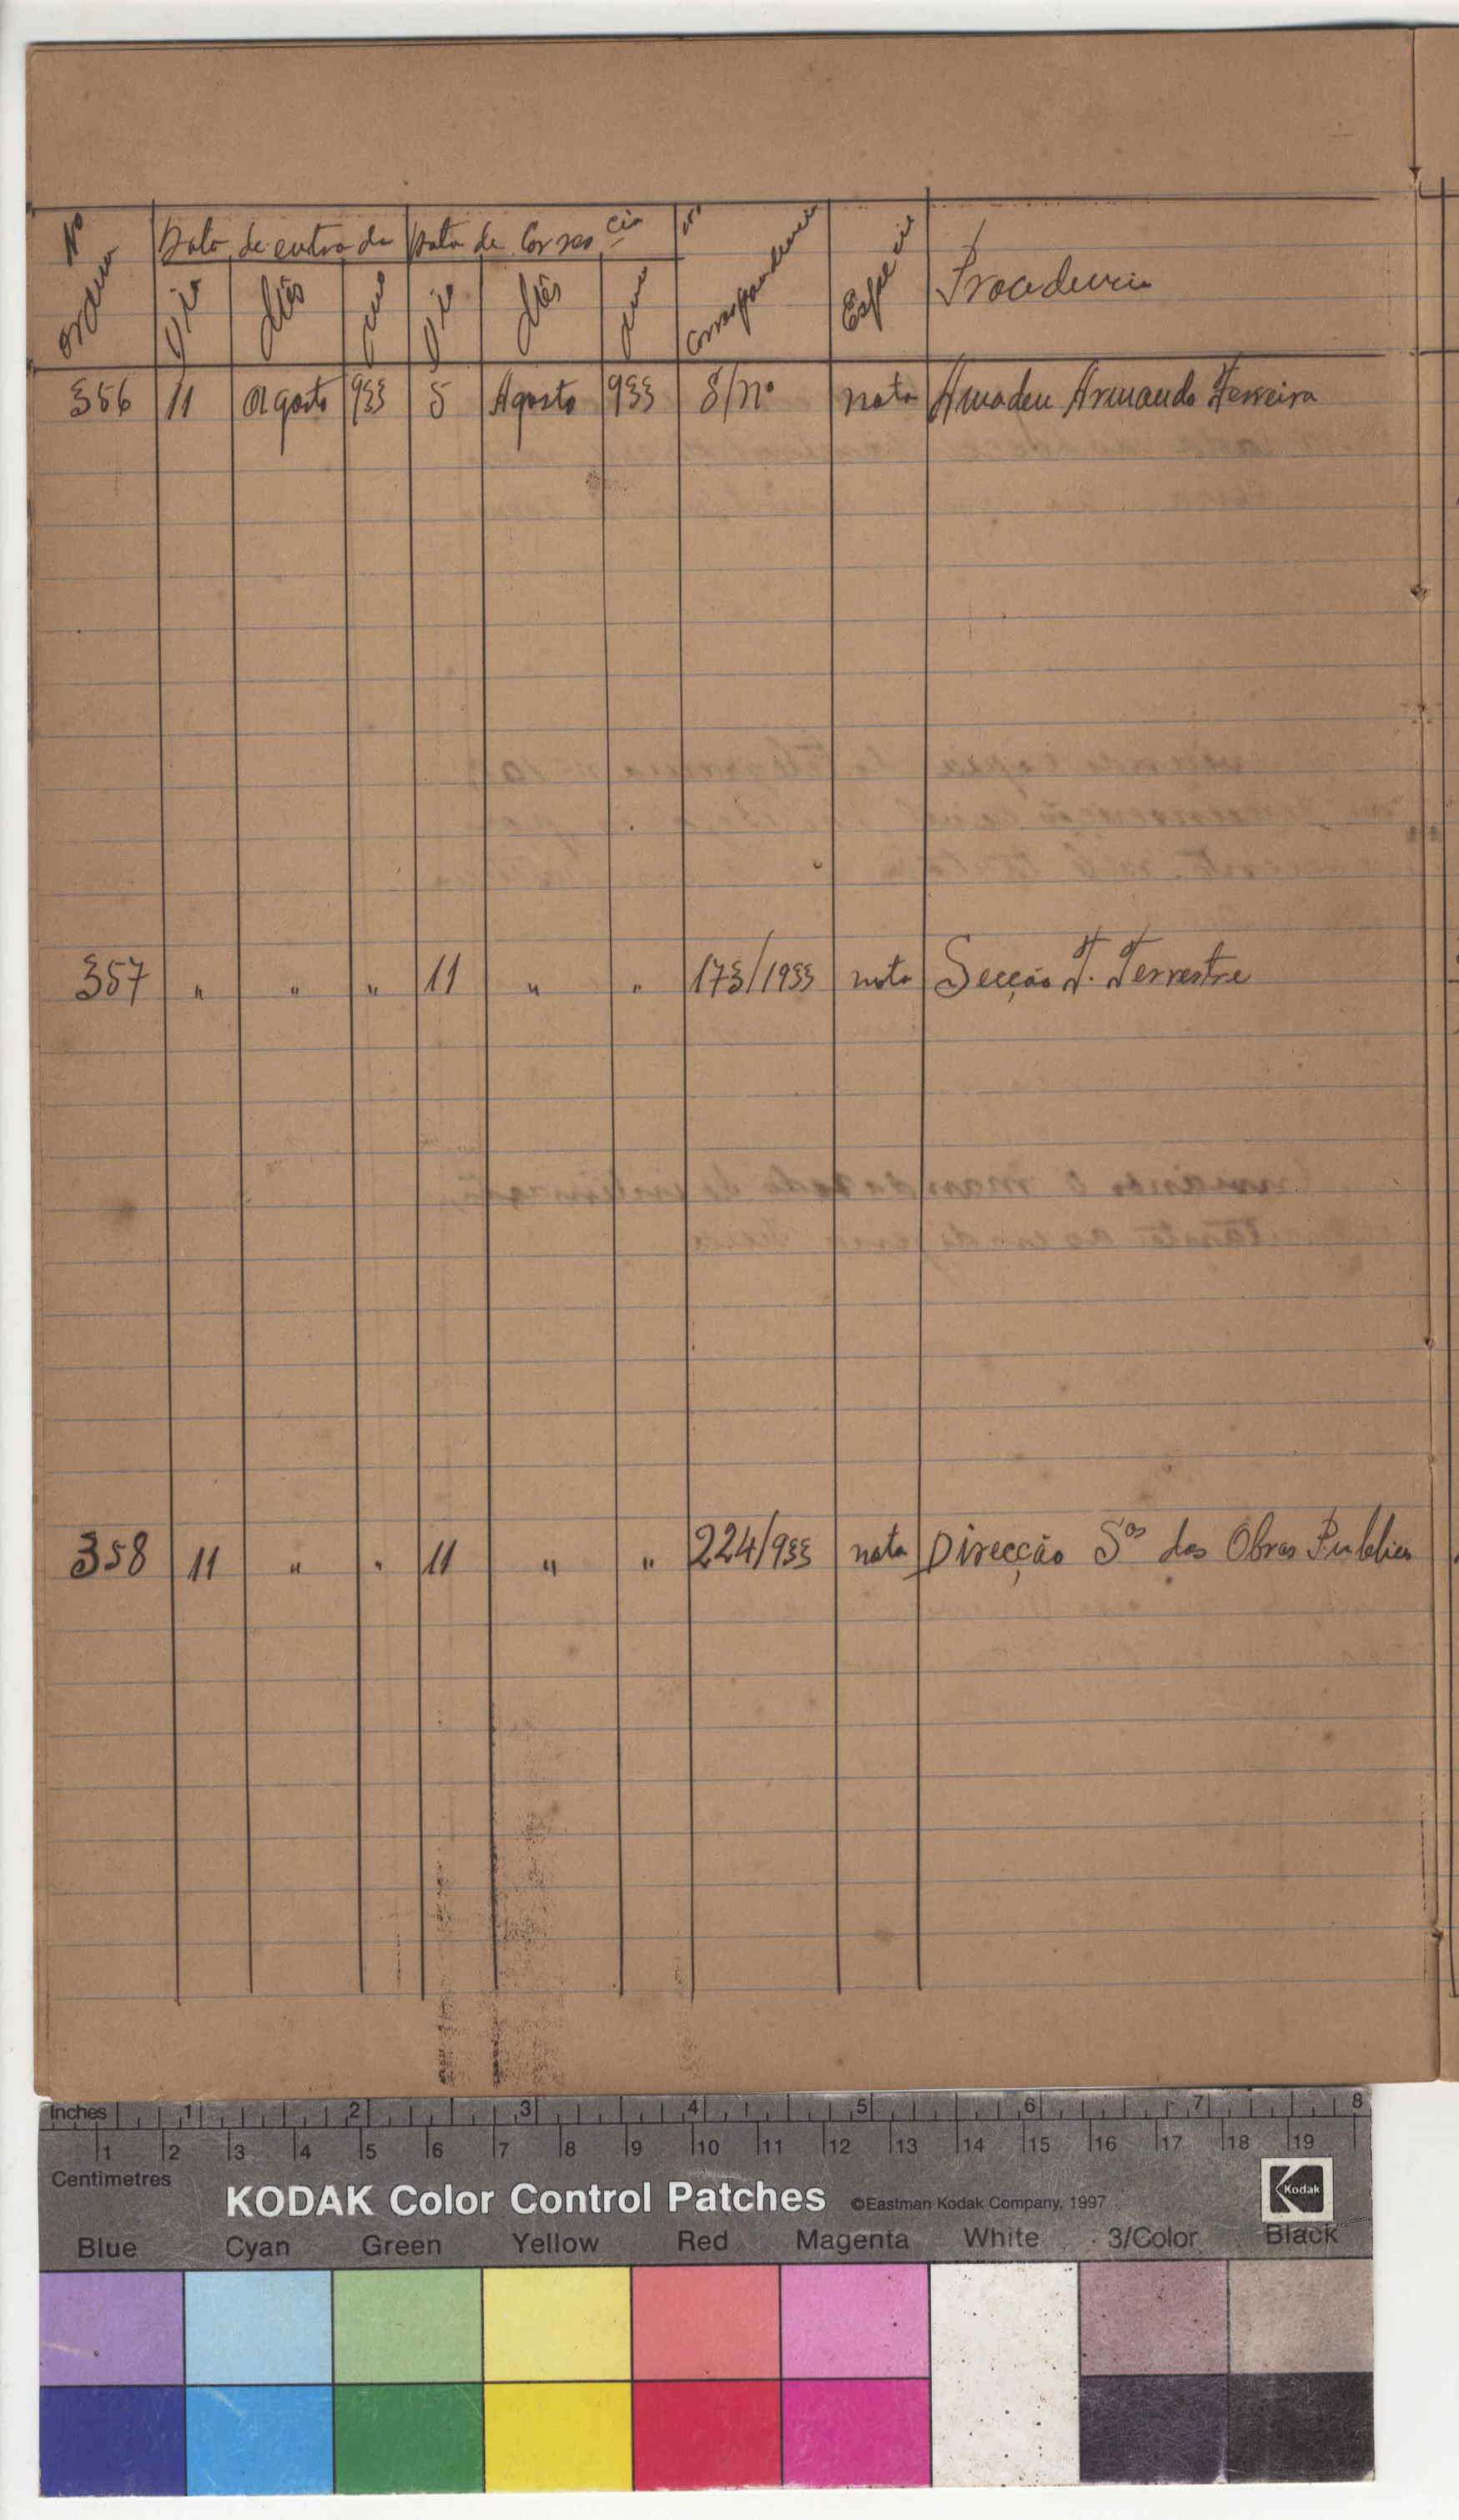 Nº ordem
Data de entrada
Data de Corres cia
Dia
Mês
ano
Dia
Mês
ano
nº Correspondencia
Especie
Procedencia
356 11 Agosto 933 5 Agosto 933 S/nº nota Amadeu Armando Ferreira
357 " " " 11 " " 173/1933 nota Secção F. Terrestre
358 11 " " 11 " " 224/933 nota Direcção Sos das Obras Publicas
Inches 1 2 3 4 5 6 7 8
1 2 3 4 5 6 7 8 9 10 11 12 13 14 15 16 17 18 19
Centimetres
KODAK Color Control Patches ©Eastman Kodak Company, 1997 Kodak
Blue Cyan Green Yellow Red Magenta White 3/Color Black